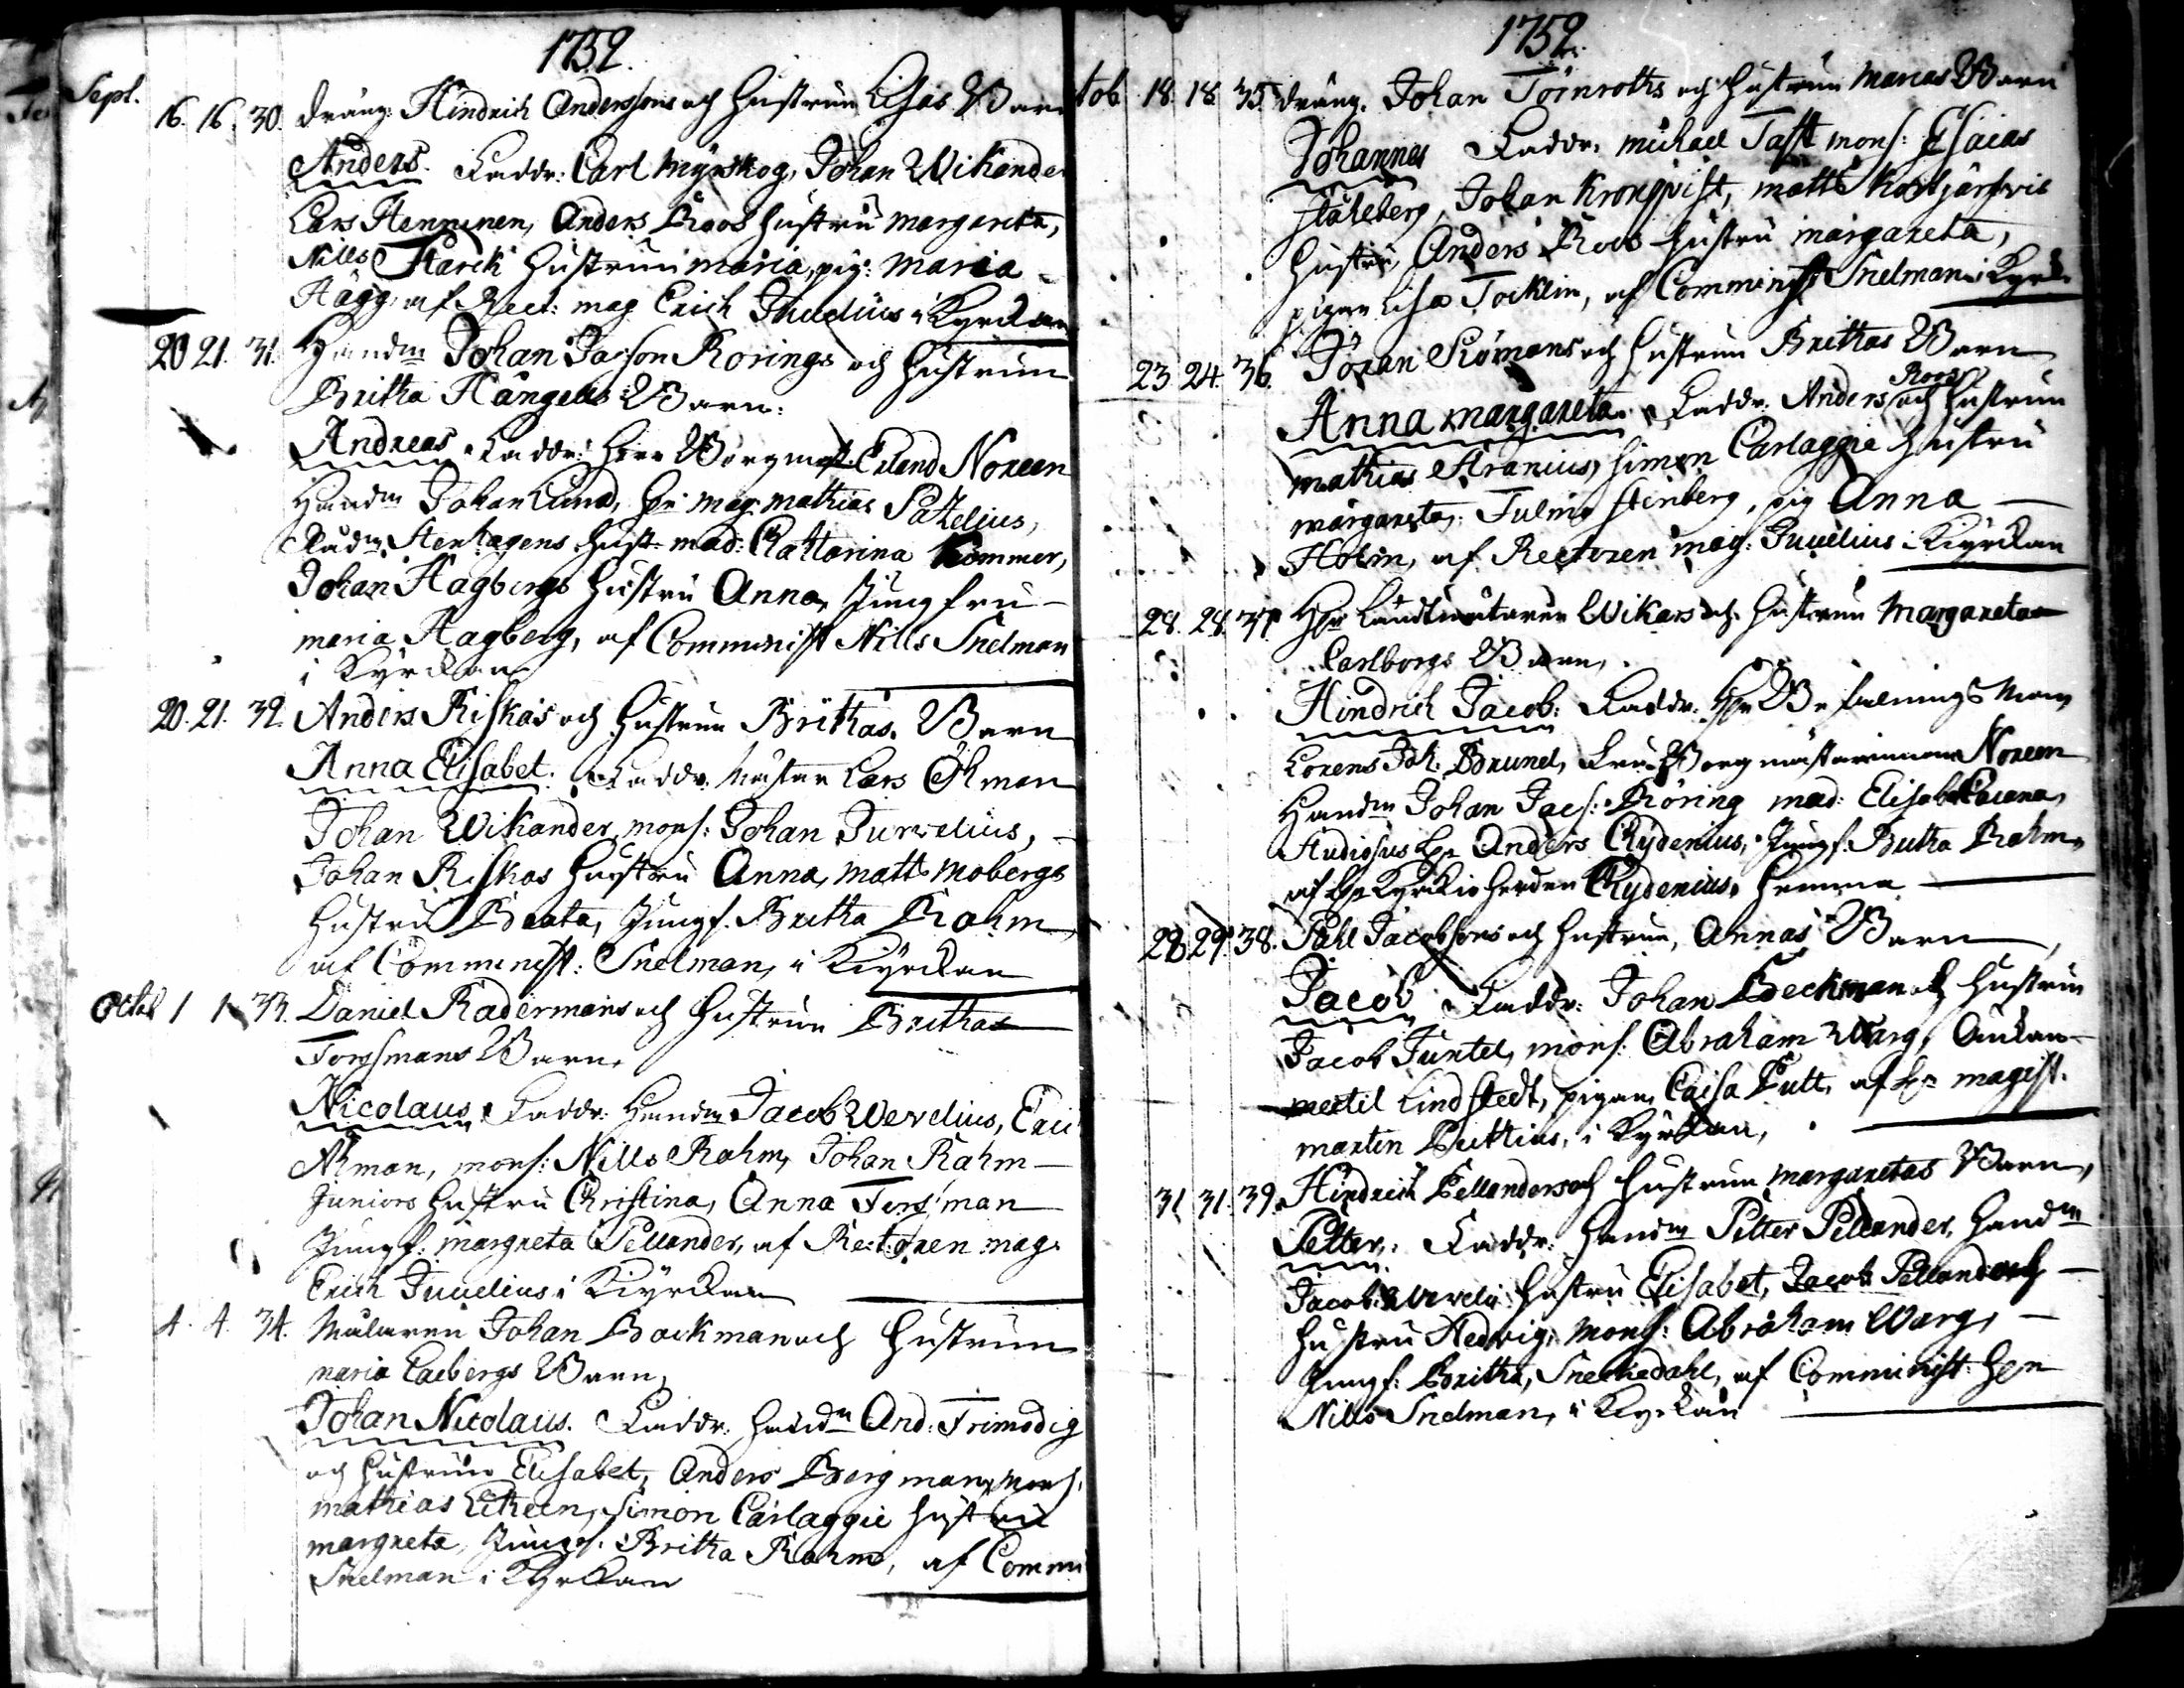 1752.
Sept.
16. 16. 30. dräng: Hindrich Anderssons och Hustrun Lisas Barn
Anders. Faddr: Carl Myrskog, Johan Wikander
Lars Henninen, Anders Roos Hustru Margareta,
Nills Starck Hustrun Maria, pig: Maria
Hägg, af Rect: mag Erich Juvelius i Kyrckan
20 21. 31. Handm Johan Jacson Rörings och Hustrun
Britha Hångelis Barn:
Andreas. Faddr: Herr Borgmast: Erland Noreen
Handm Johan Lund, Hr mag: Mathias Pazelius,
Rådm Stenhagens Hust: mad: Cattarina Kommer,
Johan Hagbergs Hustru Anna, Jungfru
Maria Hagberg, af Comminist Nills Snelman
i Kyrckan
20. 21. 32. Anders Riskas och Hustrun Brithas Barn
Anna Elisabet. Faddr: Mäster Lars Öhman
Johan Wikander, mons: Johan Jurvelius,
Johan Riskas Hustru Anna, Matts Mobergs
Hustru Beata, Jungf. Britha Rahm,
af Comminist: Snelman, i Kyrckan
Octob 1 1 33. Daniel Radermans och Hustrun Brithas
Forssmans Barn,
Nicolaus. Faddr: Handm Jacob Wevelius, Eric
Åhman, mons: Nills Rahm, Johan Rahm
Juniors Hustru Christina, Anna Forssman
Jungf: Margreta Pellander, af Rectoren mag
Erich Juvelius i Kyrckan
4. 4. 34. Målaren Johan Backman och Hustrun
Maria Barn,
Johan Nicolaus. Faddr: Handm And: Frimodig
och Hustrun Elisabet, Anders Bergman, Mons.
Mathias Litheen, Simon Carlaggie Hustru
Margreta, Jungf. Britha Rahm, af Commi
Snelman i Kyrckan
1752.
tob 18. 18. 35. dräng. Johan Törnroths och Hustrun Marias Barn
Johannes Faddr: Michael Tafft mons: Esaias
Stålberg, Johan Kronqvist, Matts
Hustru, Anders Roos Hustru Margareta,
pigan Lisa Tocklin, af Comminist Snelman i Kyrck
23. 24. 36. Johan Römans och Hustrun Brithas Barn
Anna Margareta. Faddr. Anders Roos och Hustrun
Mathias Aranius, Simon Carlaggie Hustru
Margareta, Stinberg, pig Anna
Holm, af Rectoren mag: Juvelius i Kyrckan
28. 28. 37. Hr Landtmätaren Wikars och Hustrun Margareta
Carlborgs Barn,
Hindrich Jacob. Faddr. Hr Befalnings Man
Lorens Joh. Brunel, Fru Borgmästarinnan Noreen
Handm Johan Jacs: Röring mad: Elisabet
Studiosus Hr Anders Chydenius, Jungf. Britha Rahm,
af Hr Kyrckioherden Chydenius, hemma
28 29. 38. Påhl Jacobssons och Hustrun, Annas Barn,
Jacob. Faddr: Johan Beckman och Hustrun
Jacob Juntel, mons. Abraham Warg,
Lindstedt, pigan, Caisa Putt, af Hr Magist.
Marten Puttius, i Kyrckan,
31. 31. 39. Hindrich Pellanders och Hustrun Margaretas Barn,
Petter. Faddr: Handm Petter Pellander, Handm
Jacob Wevelii Hustru Elisabet, Jacob Pellanders
Hustru Hedvig, Mons: Abraham Warg,
Jungf: Britha, Sneckedahl, af Comminist: Herr
Nills Snelman, i Kyrckan